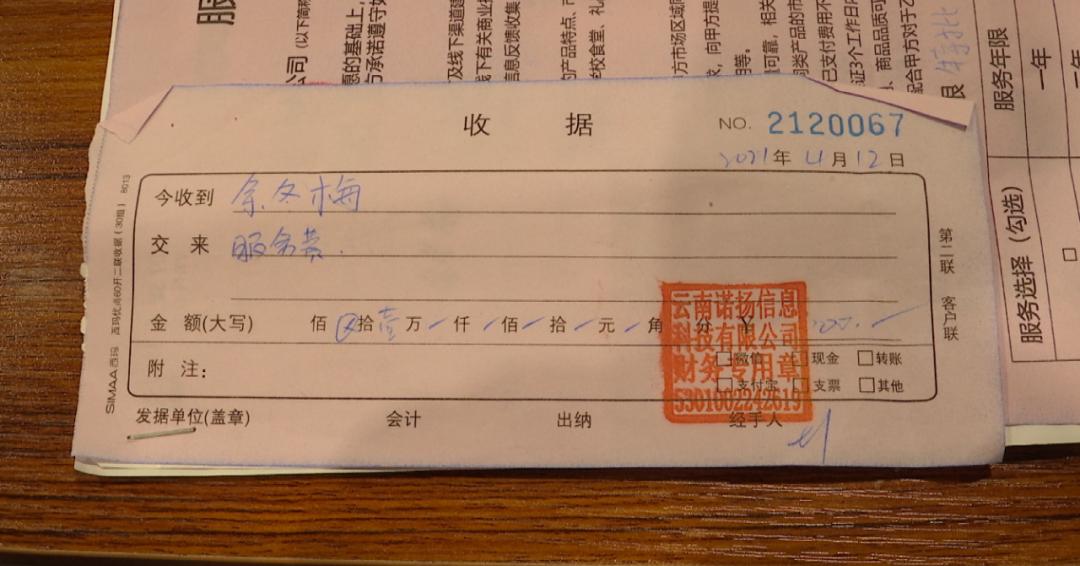 收 据
NO. 2120067
2021年4月12日
今收到 余冬梅
交 来 服务费.
金 额(大写) 佰 拾壹万 仟 佰 拾 元 角 分 ¥
附 注: 微信 现金 转账
支付宝 支票 其他
发据单位(盖章) 会计 出纳 经手人
云南诺扬信息
科技有限公司
财务专用章
5301002242619
第二联 客户联
SIMAA西玛 西玛优尚60开二联收据(30组) 8013
服
公司(以下简称
愿的基础上,
方承诺遵守如
及线下渠道建
线下有关商业
信息反馈收集
的产品特点、
学校食堂、礼
方市场区域同
求,向甲方提
用等。
可靠,相关
同类产品的市
已支付费用不
证3个工作日
、商品品质可
配合甲方对于乙
限
服务年限
一年
服务选择(勾选)